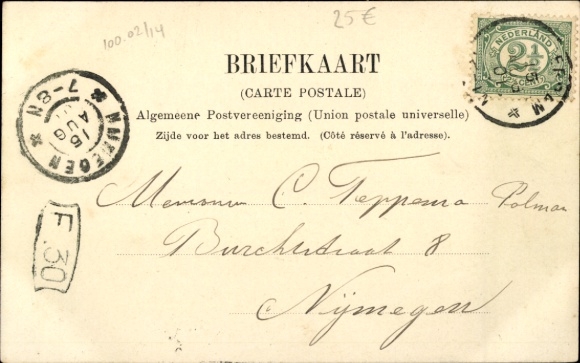 100.02/14
25€
NEDERLAND
2½
BRIEFKAART
(CARTE POSTALE)
Algemeene Postvereeniging (Union postale universelle)
Zijde voor het adres bestemd. (Côté réservé à l'adresse).
NYMEGEN
7-8N
15
AUG
F 30
Mevrouw C. Teppema Polman
Burchtstraat 8
Nijmegen